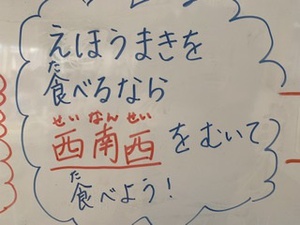 えほうまきを
た
食べるなら
せいなんせい
西南西をむいて
た
食べよう！